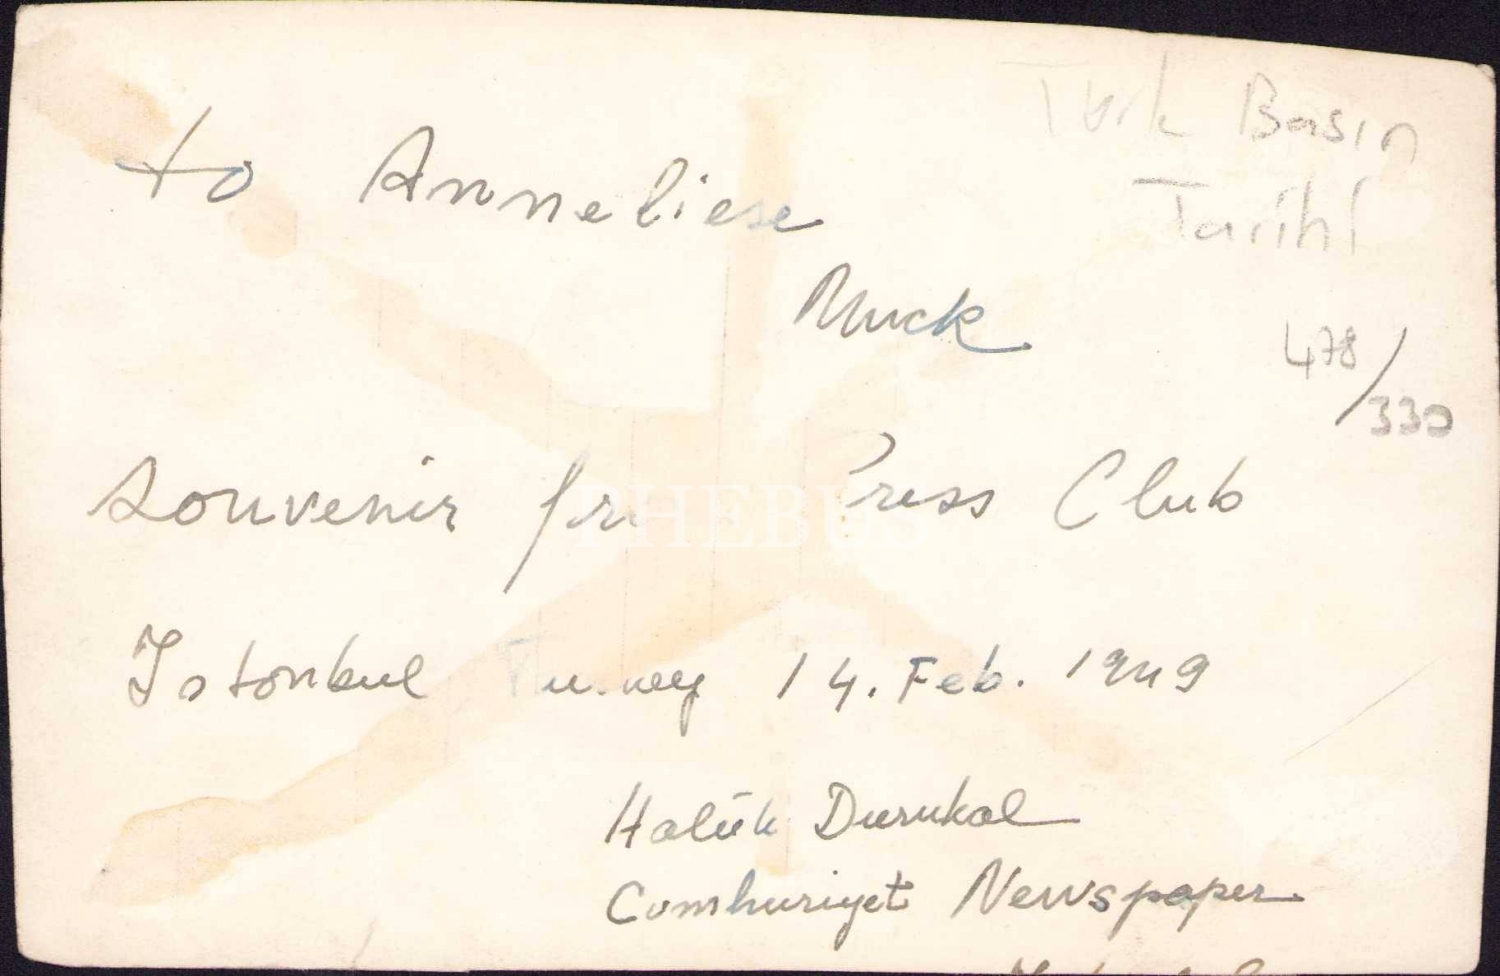 to Anneliese
Muck
souvenir fr Press Club
Istanbul 14. Feb. 1949
Halûk Durukal
Cumhuriyet Newspaper
Türk Basın
Tarihi
478/330
PHEBUS